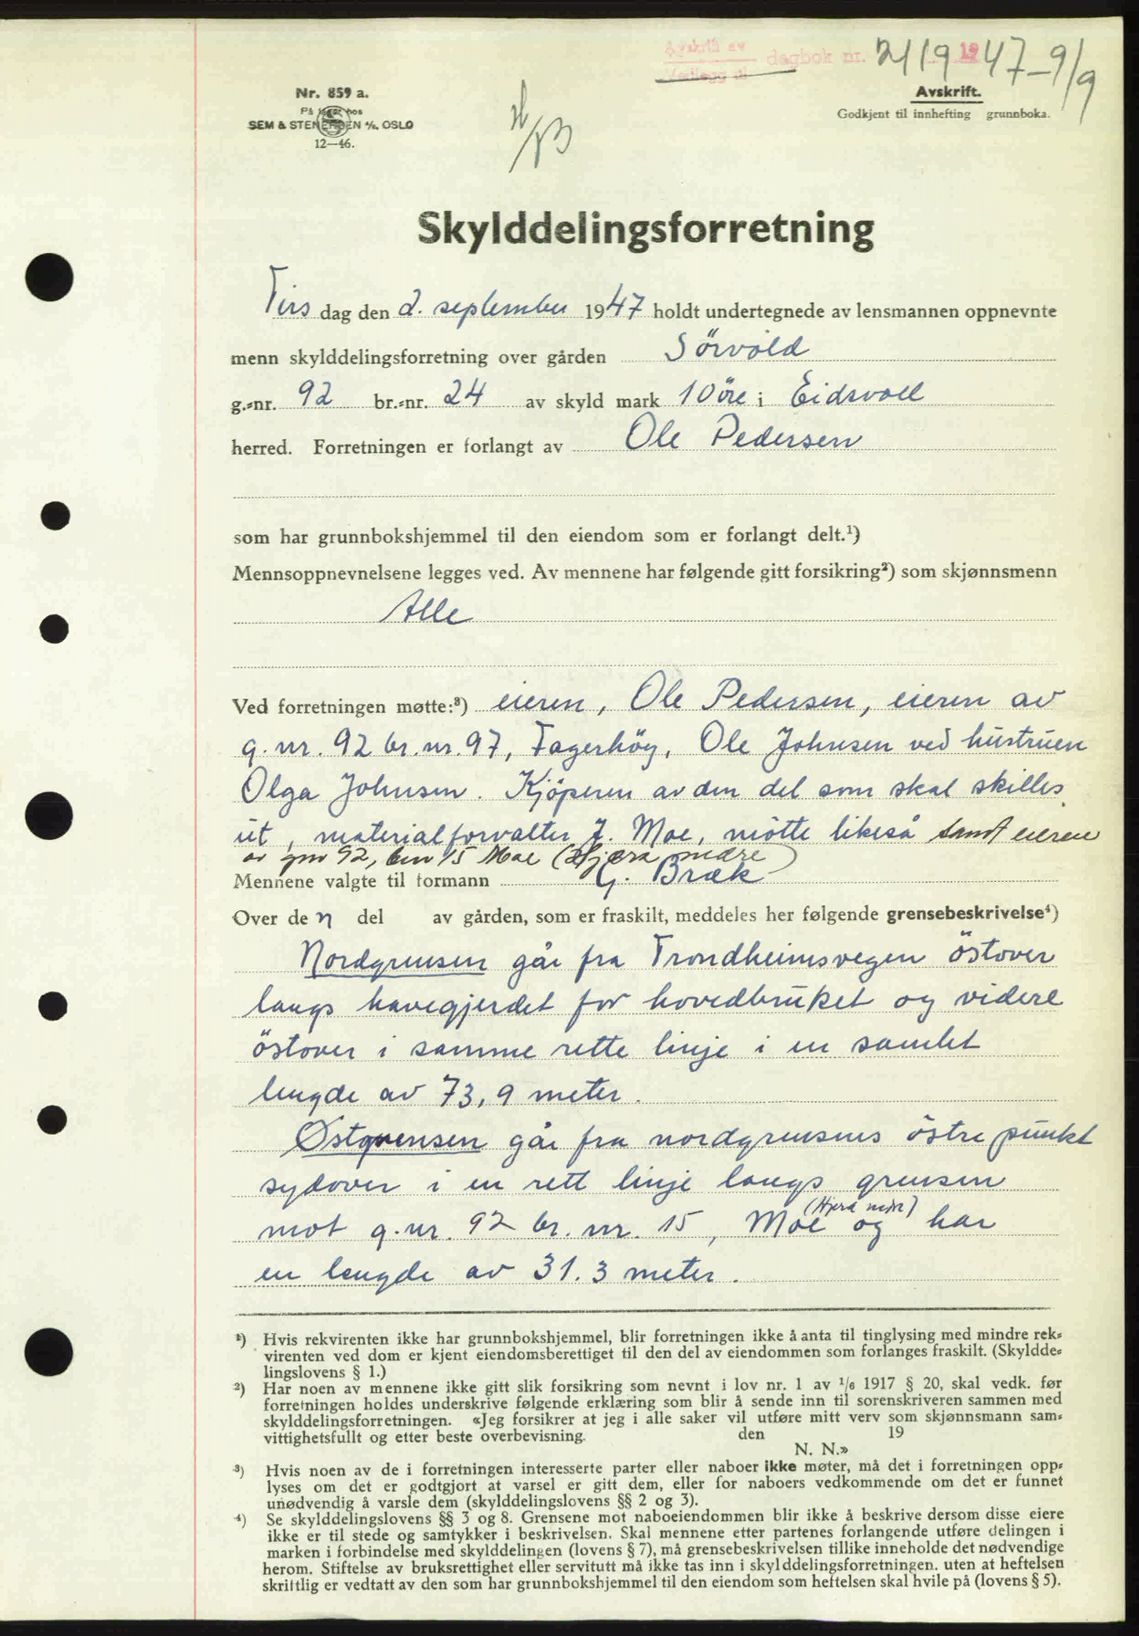 Avskrift av
dagbok nr. 2119 1947-9/9
Vedlegg til
Nr. 859 a.
På lager hos
SEM & STENERSEN A/S, OSLO
12—46.
Avskrift.
Godkjent til innhefting grunnboka.
Skylddelingsforretning
Tirs dag den 2. september 1947 holdt undertegnede av lensmannen oppnevnte
menn skylddelingsforretning over gården Sörvold
g.-nr. 92 br.-nr. 24 av skyld mark 10 öre i Eidsvoll
herred. Forretningen er forlangt av Ole Pedersen
som har grunnbokshjemmel til den eiendom som er forlangt delt.¹)
Mennsoppnevnelsene legges ved. Av mennene har følgende gitt forsikring²) som skjønnsmenn
Alle
Ved forretningen møtte:³) eieren, Ole Pedersen, eieren av
g.nr. 92 br.nr. 97, Fagerhög, Ole Johnsen ved hustruen
Olga Johnsen. Kjöperen av den del som skal skilles
ut, materialforvalter J. Moe, mötte likeså samt eieren
av gnr 92, bnr 15 Moe (Hjera nedre)
Mennene valgte til formann G. Bræk
Over den del av gården, som er fraskilt, meddeles her følgende grensebeskrivelse⁴)
Nordgrensen går fra Trondheimsvegen östover
langs havegjerdet for hovedbruket og videre
östover i samme rette linje i en samlet
lengde av 73,9 meter.
Östgrensen går fra nordgrensens östre punkt
sydover i en rett linje langs grensen
(Hjera nedr)
mot g.nr. 92 br. nr. 15, Moe og har
en lengde av 31.3 meter.
¹) Hvis rekvirenten ikke har grunnbokshjemmel, blir forretningen ikke å anta til tinglysing med mindre rek-
virenten ved dom er kjent eiendomsberettiget til den del av eiendommen som forlanges fraskilt. (Skyldde-
lingslovens § 1.)
²) Har noen av mennene ikke gitt slik forsikring som nevnt i lov nr. 1 av 1/6 1917 § 20, skal vedk. før
forretningen holdes underskrive følgende erklæring som blir å sende inn til sorenskriveren sammen med
skylddelingsforretningen. «Jeg forsikrer at jeg i alle saker vil utføre mitt verv som skjønnsmann sam-
vittighetsfullt og etter beste overbevisning. den 19
N. N.»
³) Hvis noen av de i forretningen interesserte parter eller naboer ikke møter, må det i forretningen opp-
lyses om det er godtgjort at varsel er gitt dem, eller for naboers vedkommende om det er funnet
unødvendig å varsle dem (skylddelingslovens §§ 2 og 3).
⁴) Se skylddelingslovens §§ 3 og 8. Grensene mot naboeiendommen blir ikke å beskrive dersom disse eiere
ikke er til stede og samtykker i beskrivelsen. Skal mennene etter partenes forlangende utføre delingen i
marken i forbindelse med skylddelingen (lovens § 7), må grensebeskrivelsen tillike inneholde det nødvendige
herom. Stiftelse av bruksrettighet eller servitutt må ikke tas inn i skylddelingsforretningen. uten at heftelsen
skriftlig er vedtatt av den som har grunnbokshjemmel til den eiendom som heftelsen skal hvile på (lovens § 5).